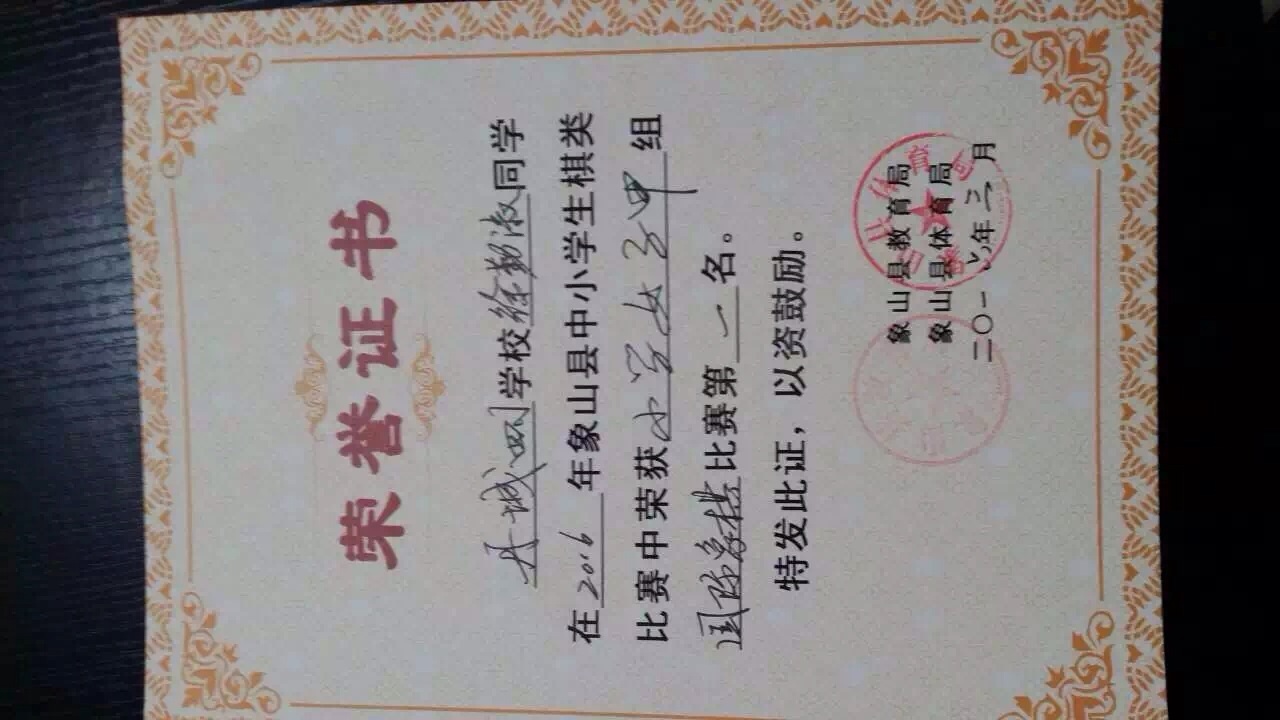 荣誉证书
丹城四小学校徐勤淑同学
在2016年象山县中小学生棋类
比赛中荣获小学女子甲组
国际象棋比赛第一名。
特发此证，以资鼓励。
象山县教育局
象山县体育局
二〇一六年三月